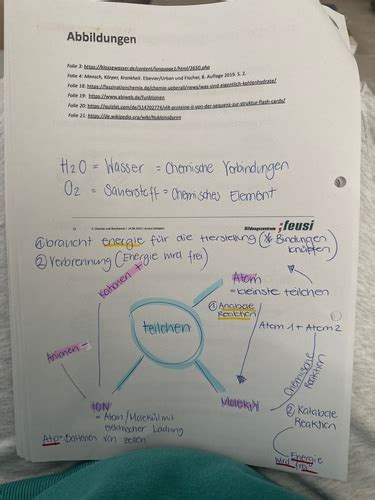 Abbildungen
Folie 3: https://klassewasser.de/content/language1/html/3650.php
Folie 4: Mensch, Körper, Krankheit. Elsevier/Urban und Fischer, 8. Auflage 2019. S. 2.
Folie 18: https://faszinationchemie.de/chemie-ueberall/news/was-sind-eigentlich-kohlenhydrate/
Folie 19: https://www.abiweb.de/funktionen
Folie 20: https://quizlet.com/514702774/elt-proteine-ii-von-der-sequenz-zur-struktur-flash-cards/
Folie 21: https://de.wikipedia.org/wiki/Nukleinsäuren
H2O = Wasser = Chemische Verbindungen
O2 = Sauerstoff = Chemisches Element
Bildungszentrum feusi
① braucht energie für die Herstellung ( Bindungen
knüpfen)
② Verbrennung (Energie wird frei)
Kationen +
Atom
= kleinste teilchen
① Anabole
Reaktion
teilchen
Atom 1 + Atom 2
Anionen -
chemische
Reaktion
ION
Molekül
= Atom/Molekül mit
elektrischer Ladung
② Katabole
Reaktion
von zellen
Energie
wird frei